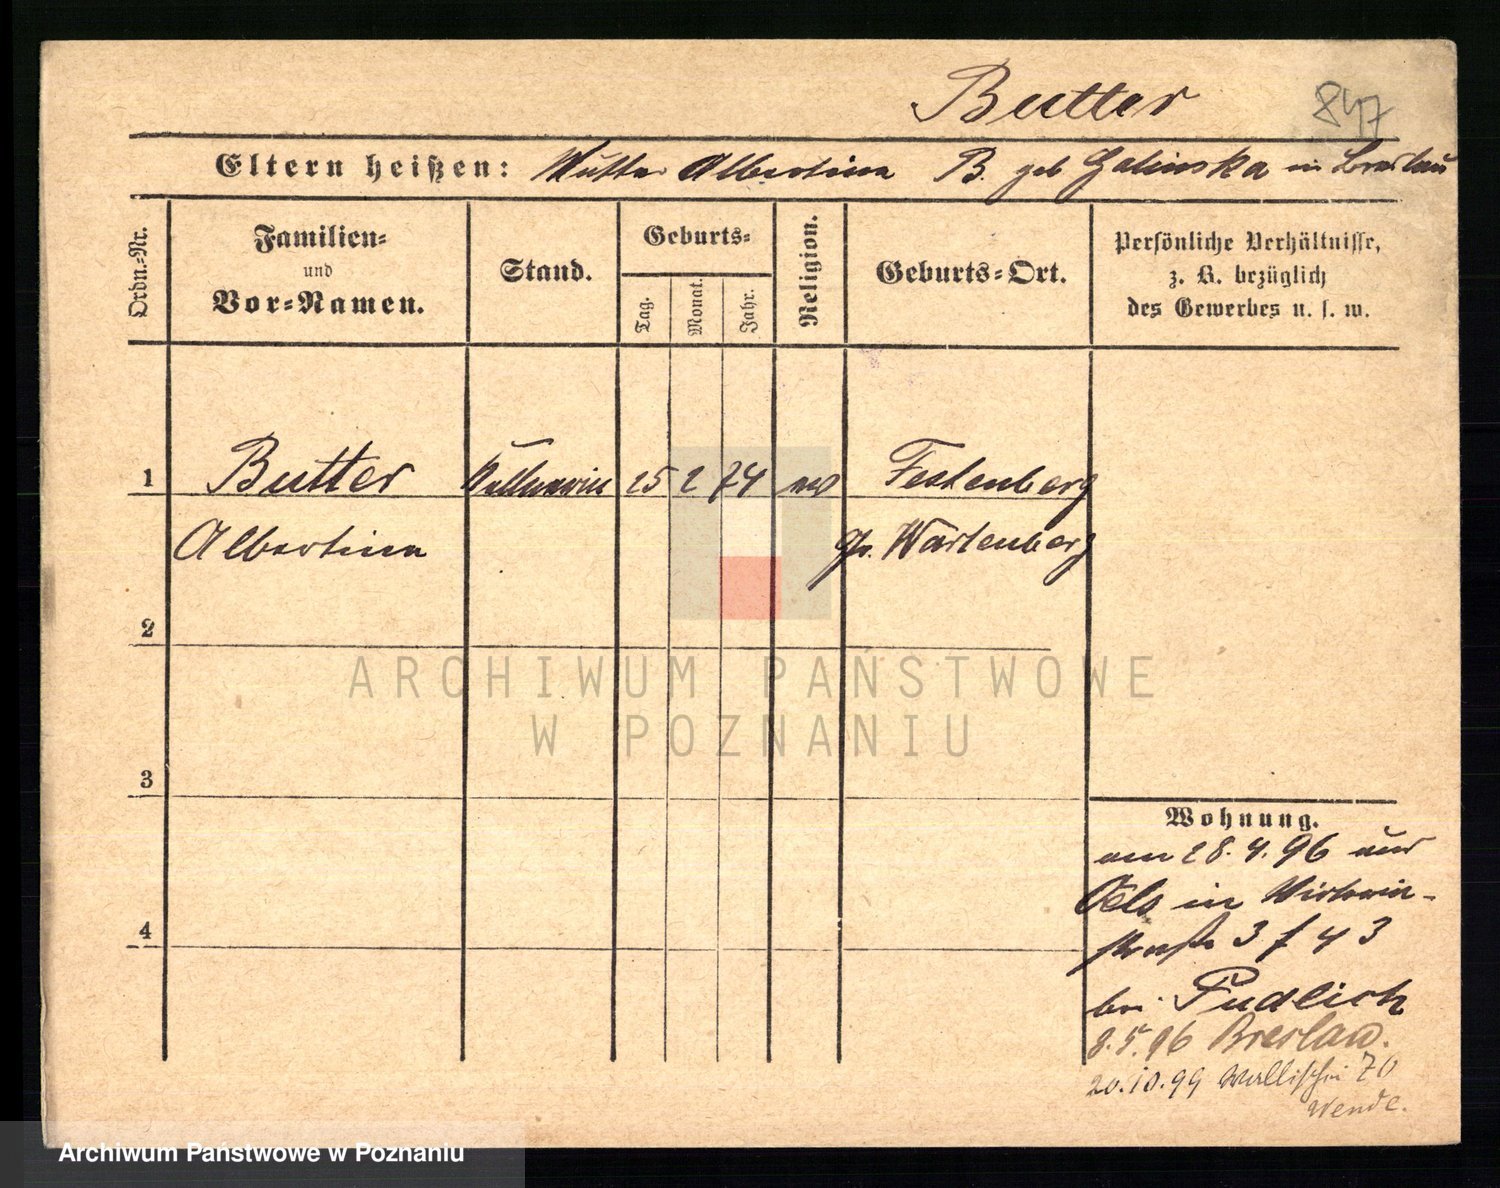 Butter 847
Eltern heißen: Mutter Albertina B. geb Galinska in Breslau
Ordn.-Nr.
Familien-
und
Vor-Namen.
Stand.
Geburts-
Tag.
Monat.
Jahr.
Religion.
Geburts-Ort.
Persönliche Verhältnisse,
z. B. bezüglich
des Gewerbes u. s. w.
1 Butter Kellnerin 25 2 74 Festenberg
Albertina Gr. Wartenberg
2
3
4
Wohnung.
am 28.4.96 aus
Oels in Victoria-
straße 3
bei Pudlich
8.5.96 Breslau.
20.10.99 Wallischei 70
Wende.
ARCHIWUM PAŃSTWOWE
W POZNANIU
Archiwum Państwowe w Poznaniu